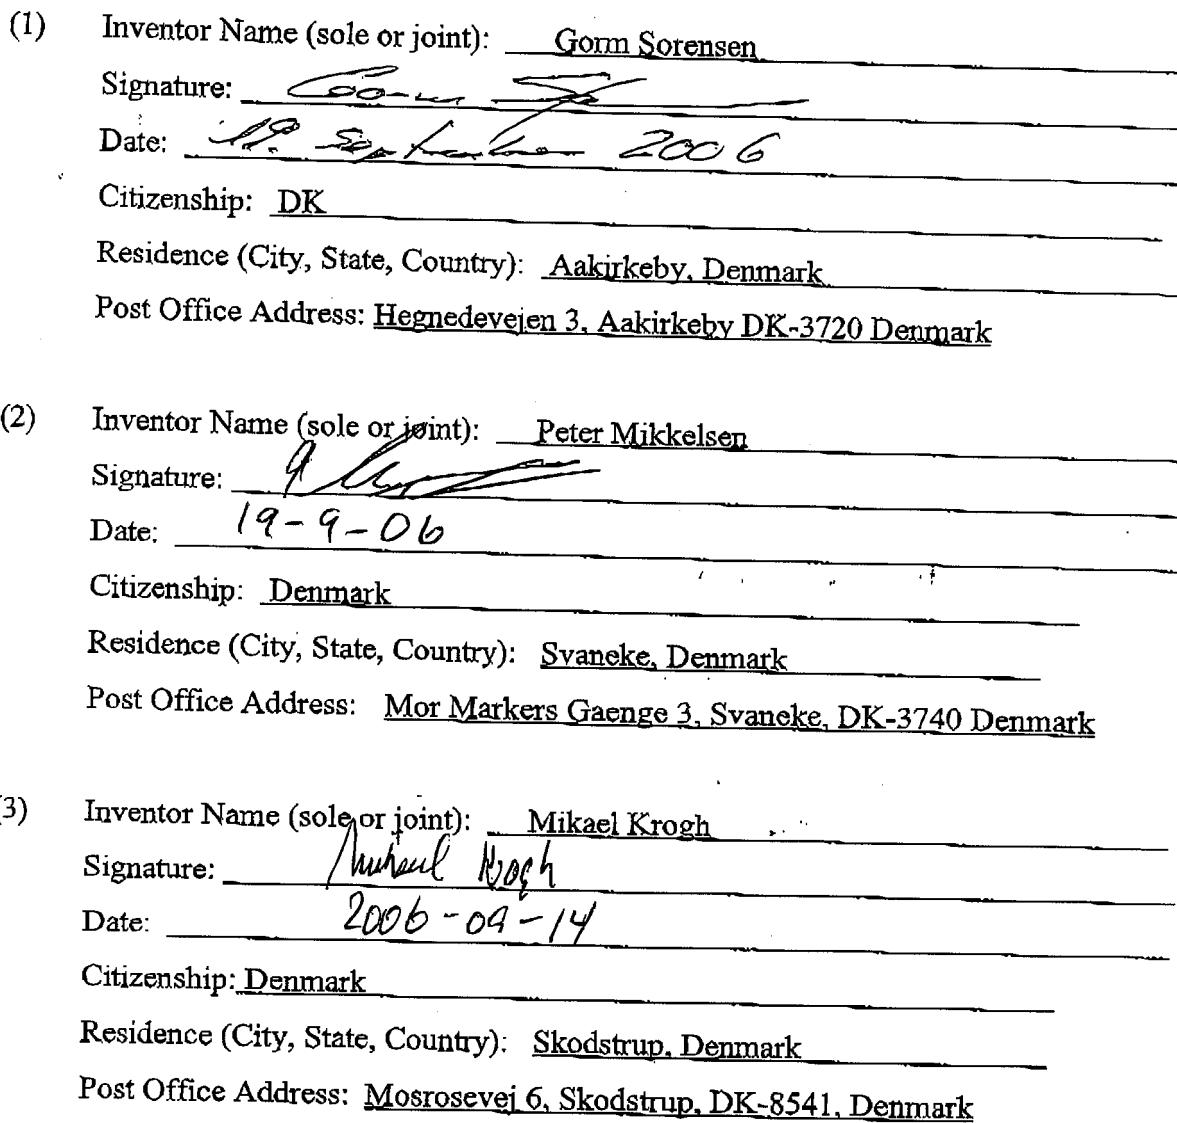 (1) Inventor Name (sole or joint): Gorm Sorensen
Signature:
Date: 19. September 2006
Citizenship: DK
Residence (City, State, Country): Aakirkeby, Denmark
Post Office Address: Hegnedevejen 3, Aakirkeby DK-3720 Denmark
(2) Inventor Name (sole or joint): Peter Mikkelsen
Signature:
Date: 19-9-06
Citizenship: Denmark
Residence (City, State, Country): Svaneke, Denmark
Post Office Address: Mor Markers Gaenge 3, Svaneke, DK-3740 Denmark
3) Inventor Name (sole or joint): Mikael Krogh
Signature: Mikael Krogh
Date: 2006-09-14
Citizenship: Denmark
Residence (City, State, Country): Skodstrup, Denmark
Post Office Address: Mosrosevej 6, Skodstrup, DK-8541, Denmark